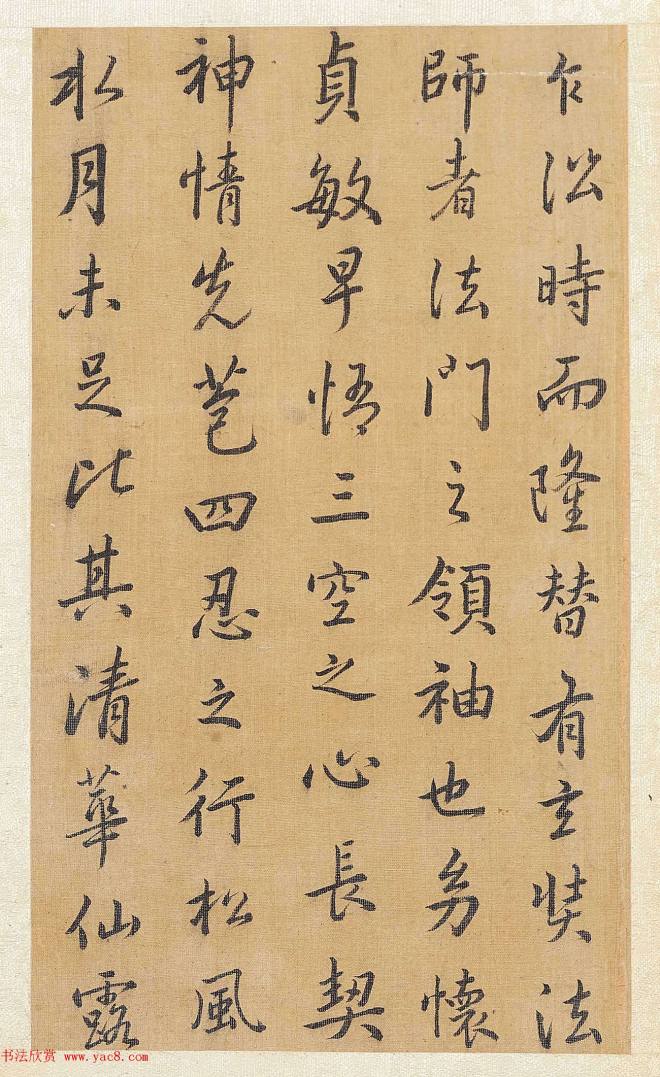 乍沿時而隆替有玄奘法
師者法門之領袖也幼懷
貞敏早悟三空之心長契
神情先苞四忍之行松風
水月未足比其清華仙露
书法欣赏 www.yac8.com